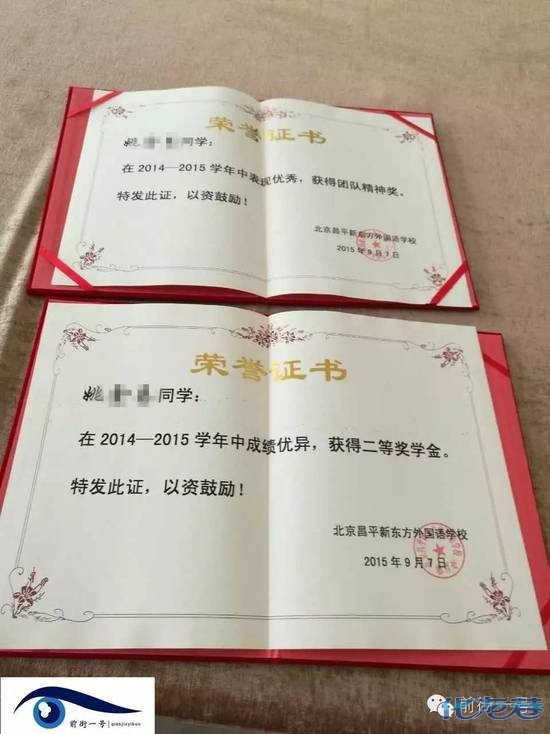 荣誉证书
姚 同学：
在2014—2015学年中表现优秀，获得团队精神奖。
特发此证，以资鼓励！
北京昌平新东方外国语学校
2015年9月7日
荣誉证书
姚 同学：
在2014—2015学年中成绩优异，获得二等奖学金。
特发此证，以资鼓励！
北京昌平新东方外国语学校
2015年9月7日
前街一号 qianjieyihao
前街一号